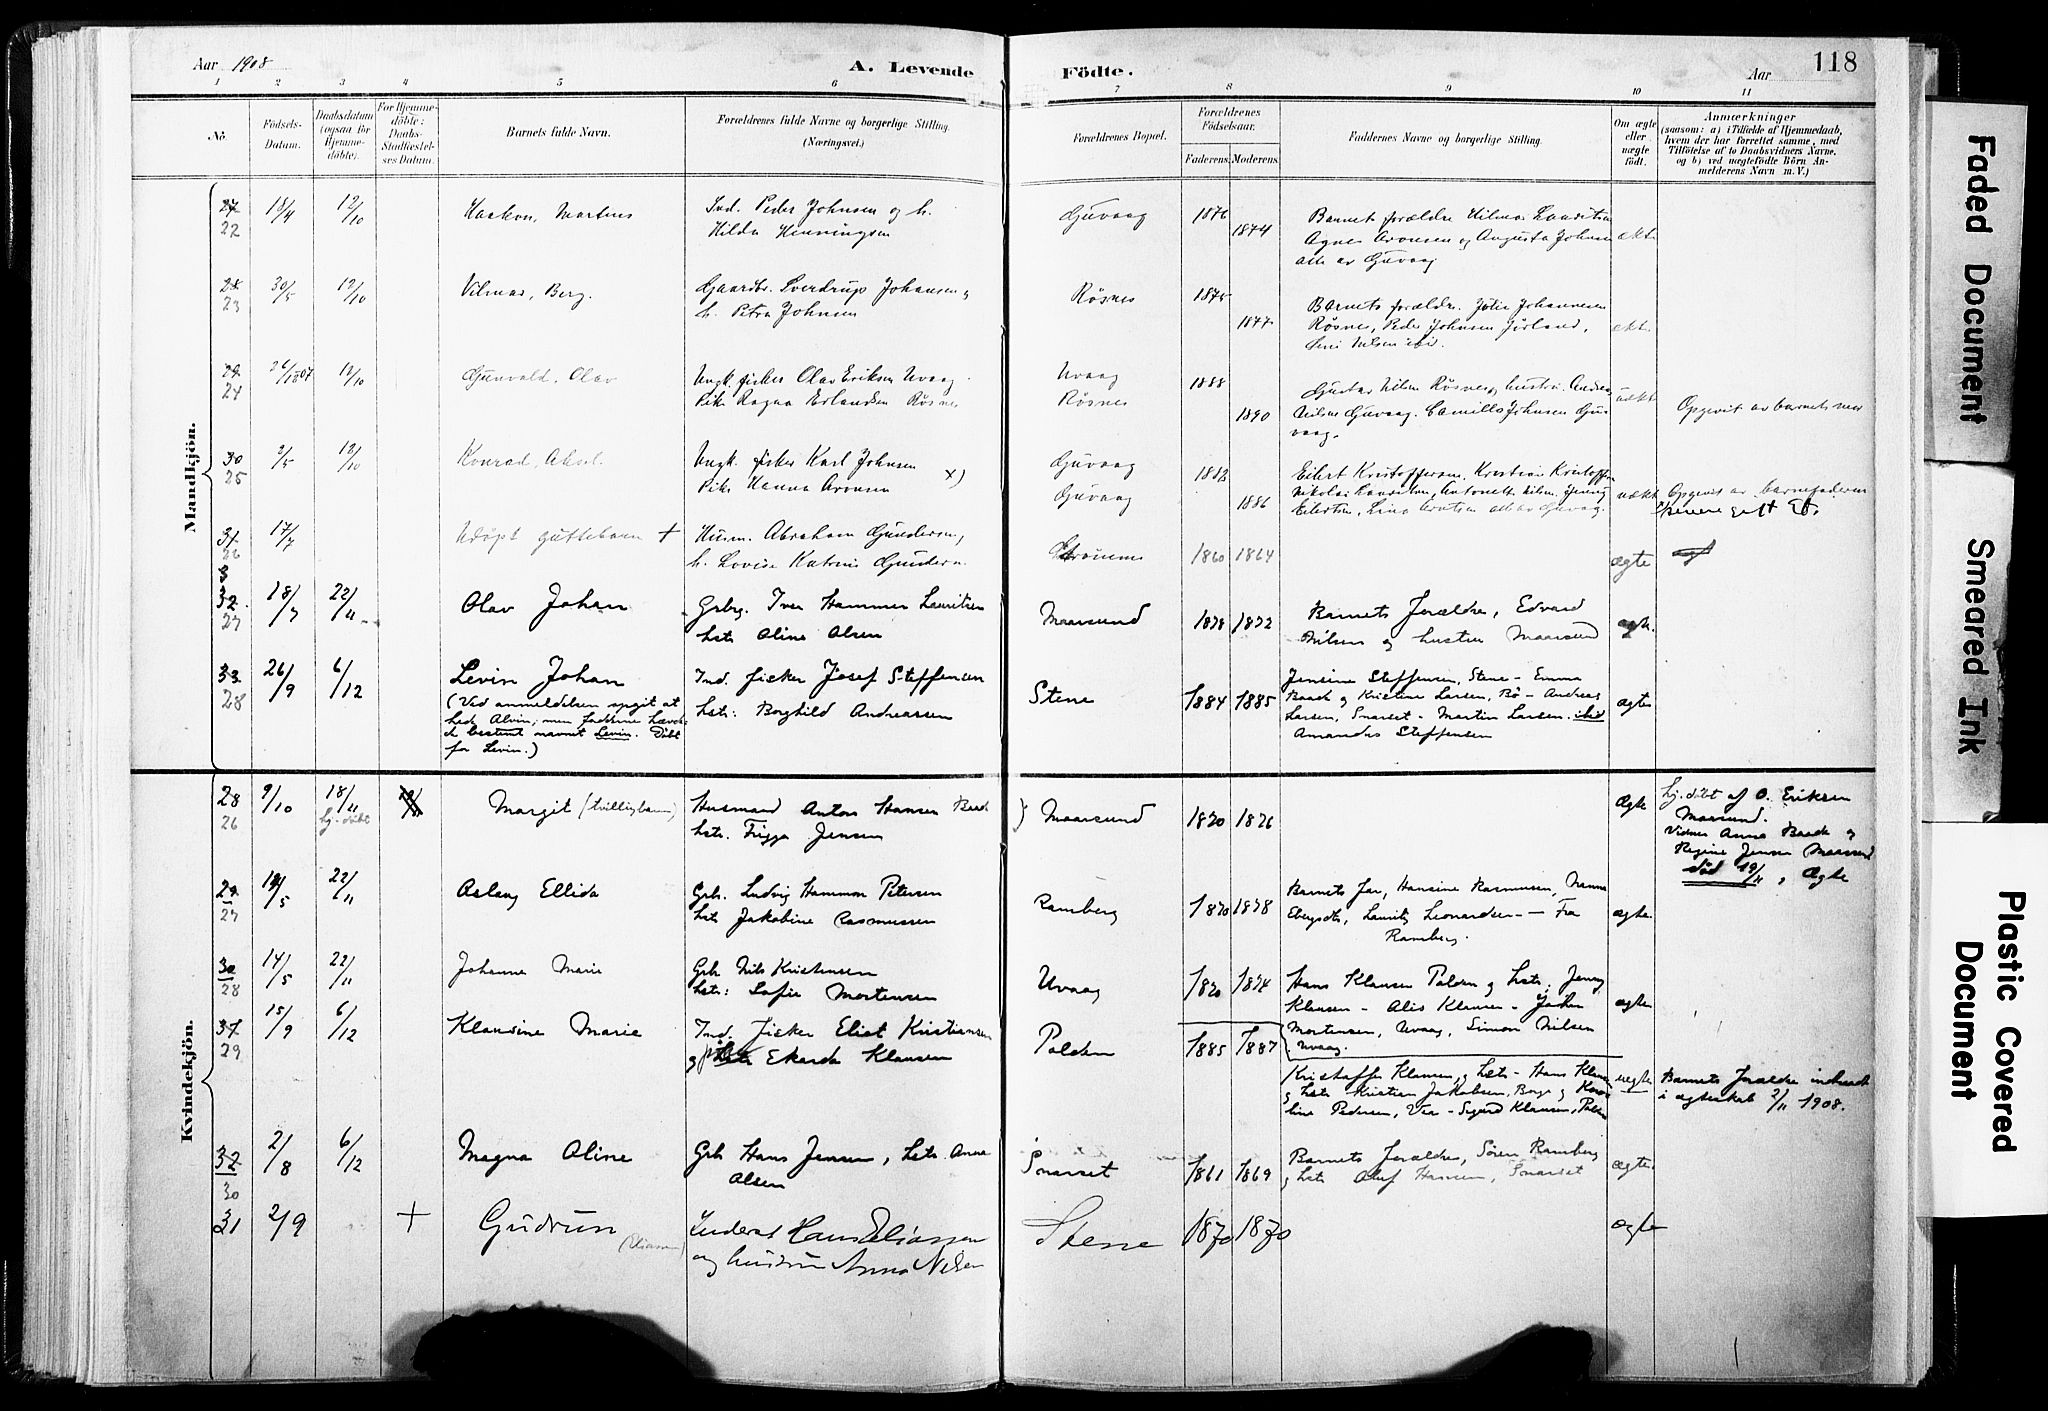 Aar 1908
A. Levende
Födte.
Aar
118
1 2 3 4 5 6 7 8 9 10 11
No.
Födsels-
Datum.
Daabsdatum
(ogsaa for
Hjemme-
döbte).
For Hjemme-
döbte:
Daabs-
Stadfæstel-
ses Datum.
Barnets fulde Navn.
Forældrenes fulde Navne og borgerlige Stilling.
(Næringsvei.)
Forældrenes Bopæl.
Forældrenes
Födselsaar.
Faderens.
Moderens.
Faddernes Navne og borgerlige Stilling.
Om ægte
eller
uægte
födt.
Anmærkninger
(saasom: a) i Tilfælde af Hjemmedaab,
hvem der har forrettet samme, med
Tilföielse af to Daabsvidners Navne.
og b) ved uægtefödte Börn An-
melderens Navn m. V.)
Mandkjön.
27 22 18/4 12/10 Haakon, Martens
Ind. Peder Johnsen og h.
Hilda Henningsen
Guvaag 1876 1874
Barnets forældre Hilmar Lauritsen
Agnes Aronsen og Augusta Johnsen
alle av Guvaag
ekte
28 23 30/5 12/10 Vilmar, Berg.
Gaardbr. Sverdrup Johansen og
h. Petra Johnsen
Røsnes 1875 1877
Barnets forældre. Johannesen
Røsnes, Peder Johnsen
Nilsen ibid.
ekte
29 24 26/10-07 12/10 Gunvald, Olav
Ungk. fisker Olav Eriksen Uvaag
Pike Ragna Erlandsen Røsnes
Uvaag
Røsnes
1888 1890
Gustav Nilsen Røsnes og hustru. Andrea
Nilsen Guvaag. Camilla Johnsen Guv-
vaag.
uækte
Opgevit av barnets mor
30 25 2/5 12/10 Konrad, Aksel.
Ungk. fisker Karl Johnsen
Pike Hanna Aronsen x)
Guvaag
Guvaag
1882 1886
Eilert Kristoffersen, Kristian Kristoffer
Nikolai Lauritsen, Antonette Nilsen, Jenny
Eilertsen, Lina Arntsen alle av Guvaag.
uækte
Opgevit av barnefaderen
senere gift
31 26 17/7 Udøpt guttebarn +
Husm. Abraham Gundersen,
h. Lovise Katrine Gundersen
Strømme 1860 1864 ægte
32. 27 18/7 22/11 Olav Johan
Grbrg. Iver Hammer Lauritsen
hstr Aline Olsen
Maarsund 1878 1872
Barnets Forældre, Edvard
Nilsen og hustru Maarsund
ægte.
33 28 26/9 6/12 Levin Johan
(Ved anmeldelsen opgit at
hede Alvin, men fadderne hævd-
de bestemt navnet Levin. Døbt
for Levin.)
Ind. fisker Josef Steffensen
hstr: Borghild Andreassen
Stene 1884 1885
Jensine Steffensen, Stene - Emma
Baack og Kristine Larsen, Bø - Andreas
Larsen, Snarset - Martin Larsen ibid
Amandus Steffensen
ægte
Kvindekjön.
28 26 9/10 18/11 hj. døbt Margit (tvillingbarn)
Husmand Anton Hansen Baack
hstr. Frigga Jensen
Maarsund 1870 1876 Ægte
hj. døbt af O. Eriksen
Maarsund.
Vidner Anna Baack og
Regine Jensen Maarsund
død 19/11, Ægte
29 27 14/5 22/11 Aslaug Ellida
Grbr. Ludvig Hammon Petersen
hstr Jakobine Rasmussen
Ramberg 1870 1878
Barnets far, Hansine Rasmussen, Nanna
Ebergsdtr, Lauritz Leonardsen - Fra
Ramberg.
ægte
30 28 14/5 22/11 Johanne Marie
Grbr Nils Kristensen
hstr: Sofie Mortensen
Uvaag 1870 1874
Hans Klausen Polden og hstr: Jenny
Klausen - Alis Klausen - Jochen
Mortensen, Uvaag, Simon Nilsen
Uvaag.
ægte
31 29 15/9 6/12 Klausine Marie
Ind. fisker Eliot Kristiansen
og pike Ekarda Klausen
Polden 1885 1887
Kristoffer Klausen og hstr - Hans Klausen
og hstr Kristian Jakobsen, Borge og Karo-
line Pedersen, Vea - Sigurd Klausen, Polden
uægte
Barnets forældre indtraadt
i ægteskab 2/11 1908.
32 30 2/8 6/12 Magna Aline
Grbr Hans Jensen, hstr Anna
Olsen
Snarset 1861 1869
Barnets Forældre, Sören Ramberg
og hstr Oluf Hansen, Snarset
ægte
31 2/9 + Gudrun (Eliassen)
Inderst Hans Eliassen
og hustru Anna Nilsen
Stene 1870 1870 ægte
Faded Document
Smeared Ink
Plastic Covered
Document